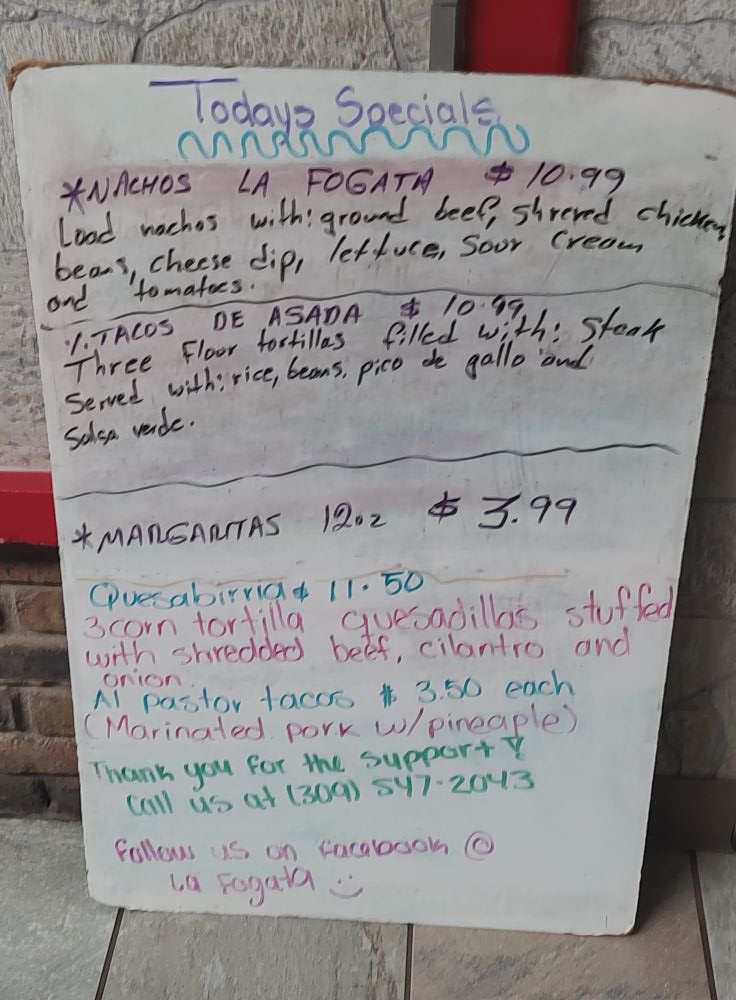 Todays Specials
*NACHOS LA FOGATA $10.99
Load nachos with: ground beef, shrered chicken,
beans, cheese dip, lettuce, Sour Cream
and tomatoes.
TACOS DE ASADA $10.99
Three Floor tortillas filled with: Steak
Served with: rice, beans, pico de gallo and
Salsa verde.
*MARGARITAS 12oz $3.99
Quesabirria $11.50
3 corn tortilla quesadillas stuffed
with shredded beef, cilantro and
onion.
Al pastor tacos $3.50 each
(Marinated pork w/pineaple)
Thank you for the support
Call us at (309) 547-2043
Follow us on facebook @
La Fogata :)